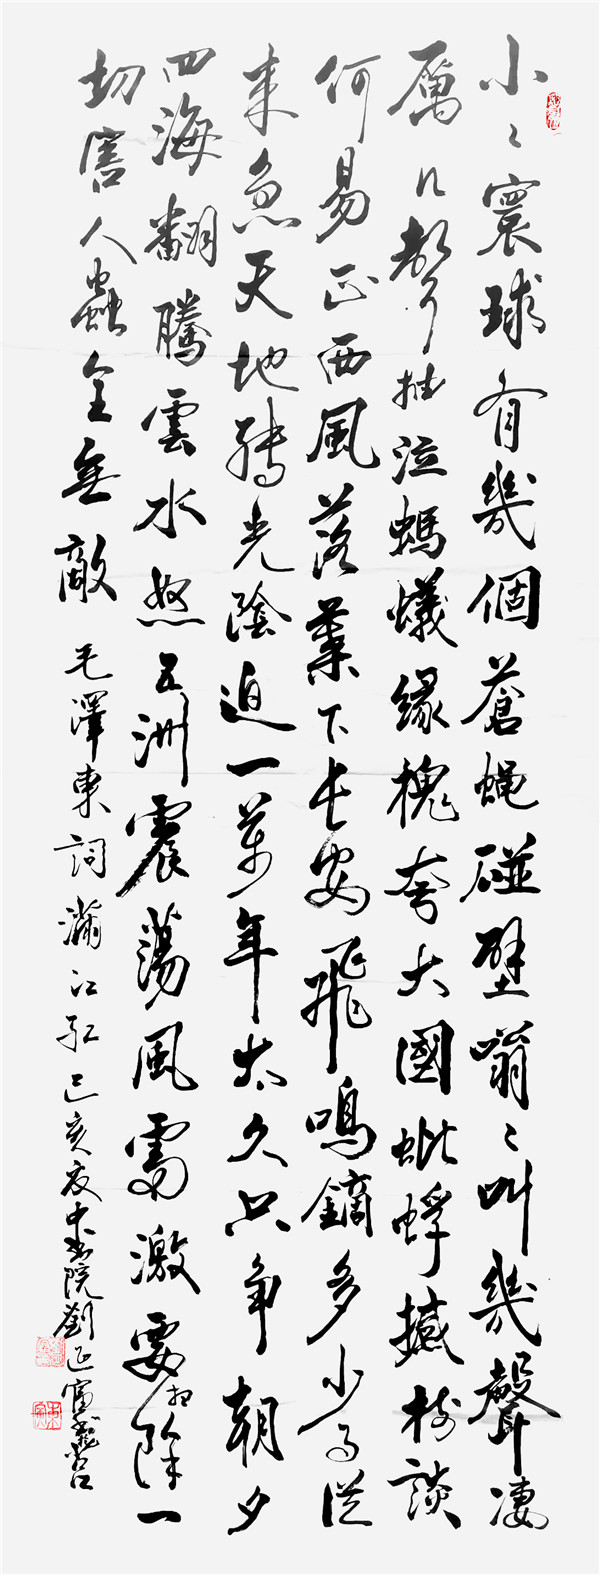 小〻寰球有幾個蒼蝇碰壁嗡〻叫幾聲凄
厲几聲抽泣螞蟻緣槐夸大國蚍蜉撼樹談
何易正西風落葉下長安飛鳴鏑多少事從
來急天地轉光陰迫一萬年太久只爭朝夕
四海翻騰雲水怒五洲震蕩風雷激要扫除一
切害人蟲全無敵 毛澤東詞滿江紅 己亥夏中书院劉正富